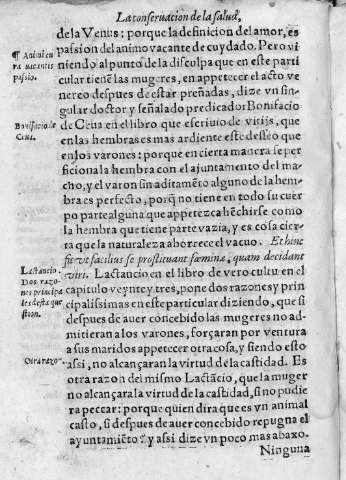 La conseruacion de la salud,
de la Venus: porque la definicion del amor, es
¶ Animi cu
ra vacantis
passio.
passion del animo vacante de cuydado. Pero vi
niendo al punto de la disculpa que en este parti
cular tienē las mugeres, en appetecer el acto ve
nereo despues de estar preñadas, dize vn sin-
gular doctor y señalado predicador Bonifacio
Bonifacio de
Ceua.
de Ceua en el libro que escriuio de vicijs, que
en las hembras es mas ardiente este desseo que
en los varones: porque en cierta manera se per
ficiona la hembra con el ajuntamiento del ma-
cho, y el varon sin aditamēto alguno de la hem
bra es perfecto, porq̄ no tiene en todo su cuer
po parte alguna que appetezca hēchirse como
la hembra que tiene parte vazia, y es cosa cier-
ta que la naturaleza aborrece el vacuo. Et hinc
fit vt facilius se prostituant fœmina, quam decidant
viri. Lactancio en el libro de vero cultu en el
Lactancio.
Dos razo-
nes principa
les desta que
stion.
capitulo veynte y tres, pone dos razones y prin
cipalissimas en este particular diziendo, que si
despues de auer concebido las mugeres no ad-
mitieran a los varones, forçaran por ventura
a sus maridos appetecer otra cosa, y siendo esto
Otra razon.
assi, no alcançaran la virtud de la castidad. Es
otra razon del mismo Lactācio, que la muger
no alcançara la virtud de la castidad, si no pudie
ra peccar: porque quien dira que es vn animal
casto, si despues de auer concebido repugna el
ayuntamiēto? y assi dize vn poco mas abaxo.
Ninguna